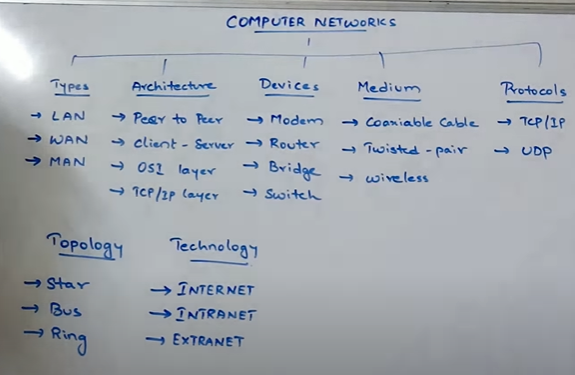 COMPUTER NETWORKS
Types
→ LAN
→ WAN
→ MAN
Architecture
→ Peer to Peer
→ Client - Server
→ OSI layer
→ TCP/IP layer
Devices
→ Modem
→ Router
→ Bridge
→ Switch
Medium
→ Coaxiable Cable
→ Twisted - pair
→ wireless
Protocols
→ TCP/IP
→ UDP
Topology
→ Star
→ Bus
→ Ring
Technology
→ INTERNET
→ INTRANET
→ EXTRANET